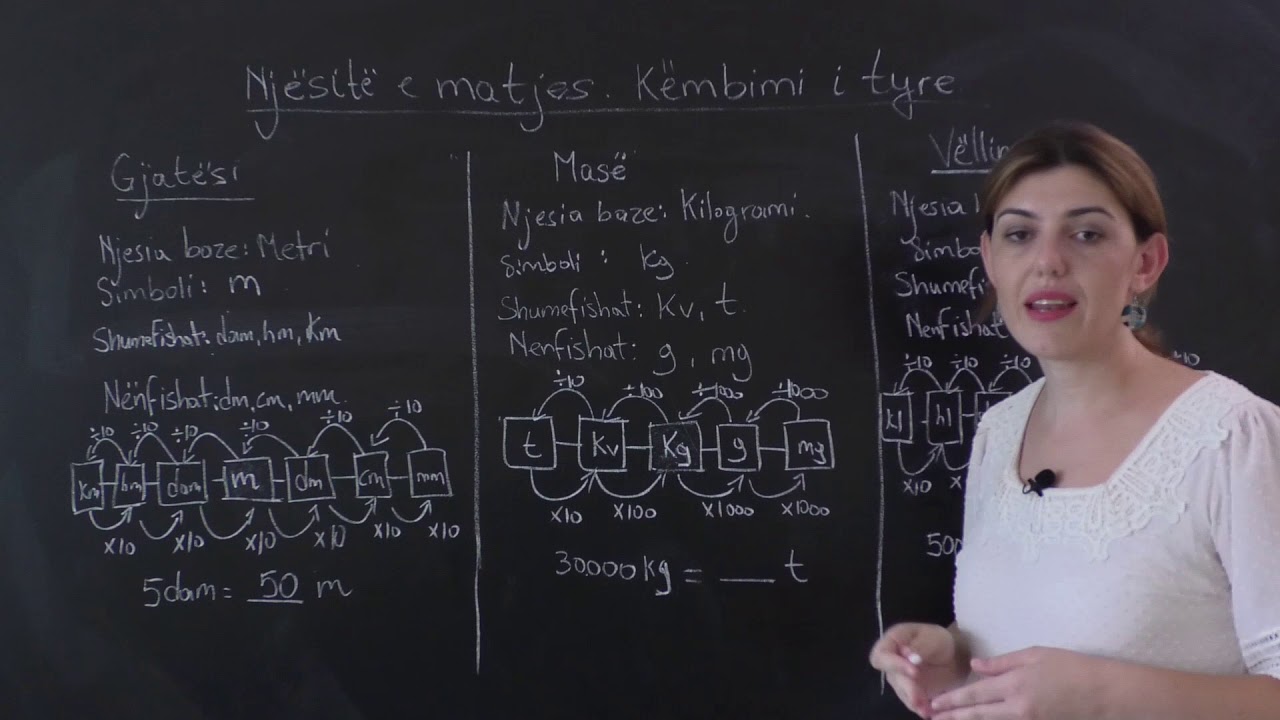 Njësitë e matjes. Këmbimi i tyre
Gjatësi
Njesia baze: Metri
Simboli: m
Shumefishat: dam, hm, Km
Nënfishat: dm, cm, mm.
÷10 ÷10 ÷10 ÷10 ÷10 ÷10
km hm dam m dm cm mm
x10 x10 x10 x10 x10 x10
5dam = 50 m
Masë
Njesia baze: Kilogrami.
Simboli : kg.
Shumefishat: Kv, t.
Nenfishat: g, mg
÷10 ÷100 ÷1000 ÷1000
t Kv Kg g mg
x10 x100 x1000 x1000
30.000 kg = ___ t
Njesia
÷10 ÷10 ÷10 ÷10
kl hl
x10 x10